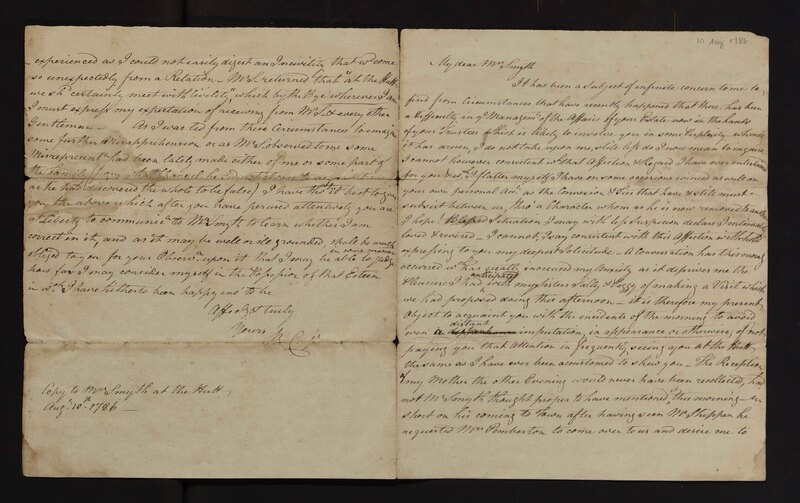 10 Aug 1786
My dear Mrs Smyth
It has been a subject of infinite concern to me to
find from Circumstances that have recently happened that there has been
a Difficulty in ye Managemt of the Affairs of your Estate now in the hands
of your Trustees which is likely to involve you in some Perplexity - whence
it has arisen, I do not take upon me, still less do I now mean to inquire
I cannot however consistent with that Affection & Regard I have ever entertained
for you & wch I flatter myself I have on some occasions evinced as well on
your own personal Acct as the Connexion & Ties that have & still must
subsist between us, thro' a Character whom as he is now removed to another &
I hope Blessed Situation I may with less Suspicion declare I intimately
loved & revered - I cannot, I say consistent with this Affection withhold
expressing to you my deepest Solicitude - A Conversation has this morning
occurred wch has greatly increased my Anxiety as it deprives me the
Pleasure I had anticipated with my sisters Sally & Peggy of making a Visit which
we had proposed doing this afternoon - it is therefore my present
Object to acquaint you with the incidents of the morning to avoid
even a distant imputation, in appearance or otherwise, of not
paying you that attention in frequently seeing you at the Hutt -
the same as I have ever been accustomed to shew you - The Reception
of my Mother the other Evening would never have been recollected, had
not Mr Smyth thought proper to have mentioned, this morning - in
short on his coming to Town after having seen Mr Shippen he
requested Mrs Pemberton to come over to us and desire me to
experienced as I could not easily digest an Incivility that wd come
so unexpectedly from a Relation - Mr S. returned that "at the Hutt
we shd certainly meet with Civility", which by the Bye wherever I am
I must express my expectation of receiving from Mr S. & every other
Gentleman - As I was led from these Circumstances to imagine
some further Misapprehension or as Mr S. observed to me some
Misrepresentn had been lately made either of me or some part of
the family
as he had discovered the whole to be false) I have tho't it best to give
you the above which after you have perused attentively you are
at Liberty to communicte to Mr Smyth to learn whether I am
correct in it, and as it may be well or ill grounded, shall be much
obliged to you for your Observns upon it that I may be able in some measure to judge
how far I may consider myself in the Possession of that Esteem
in wch I have hitherto been happy enough to be
Affecly & truly
Yours
B C Jr
Copy to Mrs Smyth at the Hutt
Augt 10th 1786 -